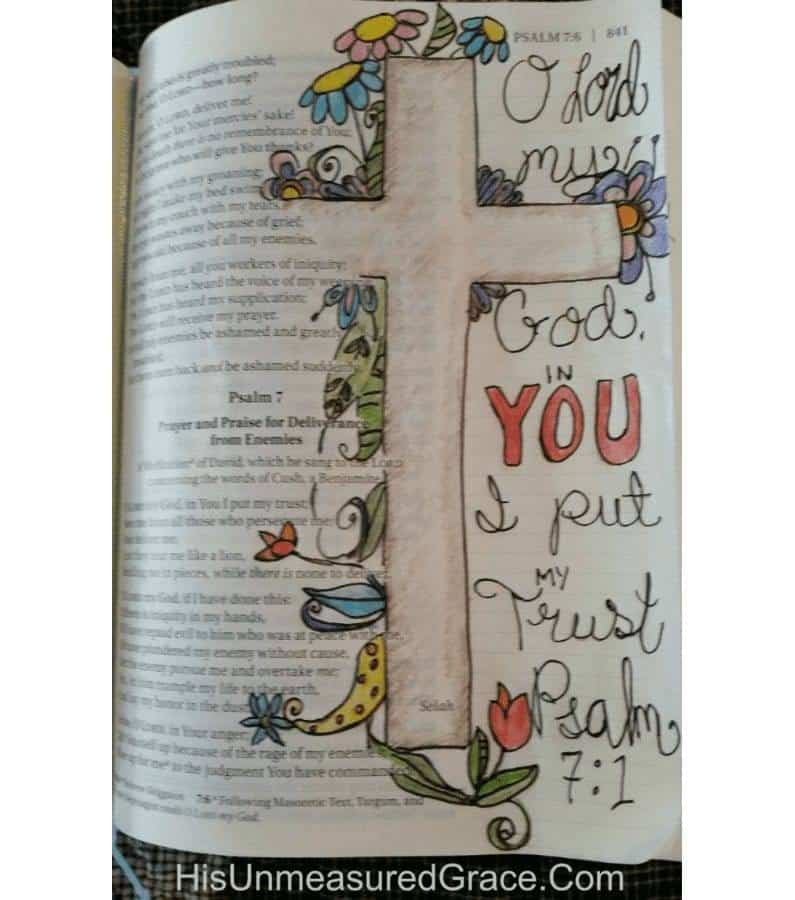 PSALM 7:6 | 841
is greatly troubled;
how long?
deliver me!
for Your mercies' sake!
there is no remembrance of You;
who will give You thanks?
with my groaning;
make my bed
my couch with my tears.
away because of grief;
because of all my enemies.
me, all you workers of iniquity;
has heard the voice of my
heard my supplication;
will receive my prayer.
enemies be ashamed and greatly
back and be ashamed suddenly
Psalm 7
Prayer and Praise for Deliverance
from Enemies
of David, which he sang to the LORD
concerning the words of Cush, a Benjamite
God, in You I put my trust;
all those who persecute me;
me like a lion,
in pieces, while there is none to deliver
God, if I have done this:
iniquity in my hands,
repaid evil to him who was at peace with me,
plundered my enemy without cause,
enemy pursue me and overtake me;
trample my life to the earth,
my honor in the dust.
Selah
in Your anger;
up because of the rage of my enemies
for me to the judgment You have commanded
7:6 Following Masoretic Text, Targum, and
my God.
O Lord
my
God,
IN
YOU
I put
MY
Trust
Psalm
7:1
HisUnmeasuredGrace.Com